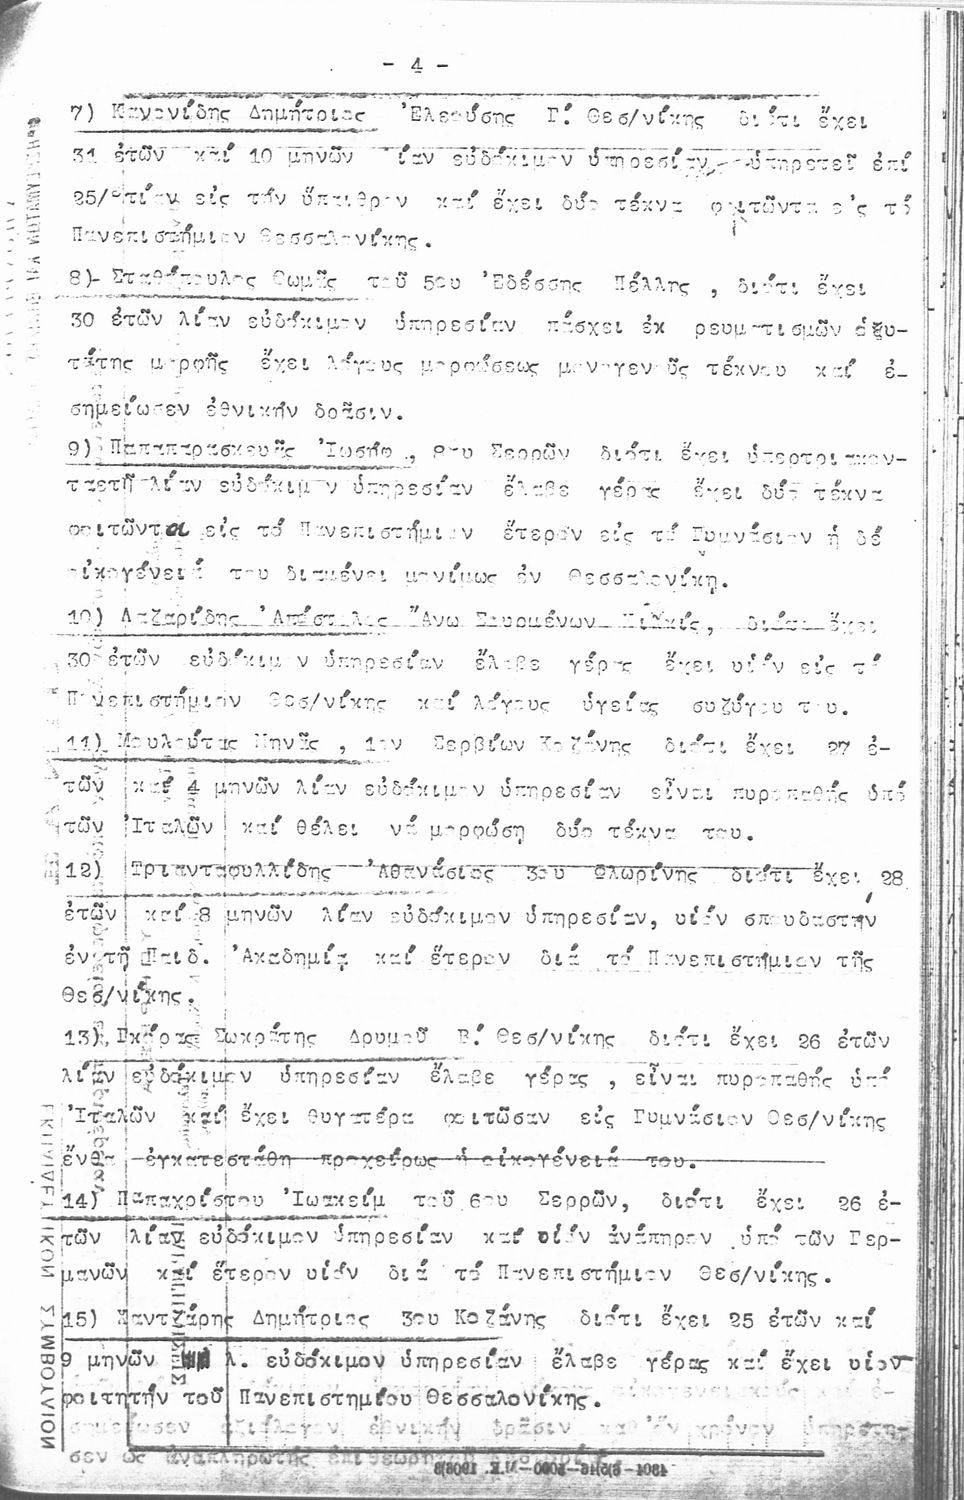 - 4 -
7) Κανονίδης Δημήτριος Ἐλεούσης Γ΄. Θεσ/νίκης διότι ἔχει
31 ἐτῶν καί 10 μηνῶν λίαν εὐδόκιμον ὑπηρεσίαν, ὑπηρετεῖ ἐπί
25/ετίαν εἰς τήν ὕπαιθρον καί ἔχει δύο τέκνα φοιτῶντα εἰς τό
Πανεπιστήμιον Θεσσαλονίκης.
8) Σταθόπουλος Θωμᾶς τοῦ 5ου Ἐδέσσης Πέλλης , διότι ἔχει
30 ἐτῶν λίαν εὐδόκιμον ὑπηρεσίαν πάσχει ἐκ ρευματισμῶν ὀξυ-
τάτης μορφῆς ἔχει λόγους μορφώσεως μονογενοῦς τέκνου καί ἐ-
σημείωσεν ἐθνικήν δρᾶσιν.
9) Παπαπαρασκευᾶς Ἰωσήφ , 8ου Σερρῶν διότι ἔχει ὑπερτριακον-
ταετῆ λίαν εὐδόκιμον ὑπηρεσίαν ἔλαβε γέρας ἔχει δύο τέκνα
φοιτῶντα εἰς τό Πανεπιστήμιον ἕτερον εἰς τό Γυμνάσιον ἡ δέ
οἰκογένειά του διαμένει μονίμως ἐν Θεσσαλονίκῃ.
10) Λαζαρίδης Ἀπόστολος Ἄνω Σουρμένων Κιλκίς, διότι ἔχει
30 ἐτῶν εὐδόκιμον ὑπηρεσίαν ἔλαβε γέρας ἔχει υἱόν εἰς τό
Πανεπιστήμιον Θεσ/νίκης καί λόγους ὑγείας συζύγου του.
11) Μουλούτας Μηνᾶς , 1ον Σερβίων Κοζάνης διότι ἔχει 27 ἐ-
τῶν καί 4 μηνῶν λίαν εὐδόκιμον ὑπηρεσίαν εἶναι πυροπαθής ὑπό
τῶν Ἰταλῶν καί θέλει νά μορφώσῃ δύο τέκνα του.
12) Τριανταφυλλίδης Ἀθανάσιος 3ου Φλωρίνης διότι ἔχει 28
ἐτῶν καί 8 μηνῶν λίαν εὐδόκιμον ὑπηρεσίαν, υἱόν σπουδαστήν
ἐν τῇ Παιδ. Ἀκαδημίᾳ καί ἕτερον διά τό Πανεπιστήμιον τῆς
Θεσ/νίκης.
13) Γκόρας Σωκράτης Δρυμοῦ Β΄. Θεσ/νίκης διότι ἔχει 26 ἐτῶν
λίαν εὐδόκιμον ὑπηρεσίαν ἔλαβε γέρας , εἶναι πυροπαθής ὑπό
Ἰταλῶν καί ἔχει θυγατέρα φοιτῶσαν εἰς Γυμνάσιον Θεσ/νίκης
ἔνθα ἐγκατεστάθη προχείρως ἡ οἰκογένειά του.
14) Παπαχρίστου Ἰωακείμ τοῦ 6ου Σερρῶν, διότι ἔχει 26 ἐ-
τῶν λίαν εὐδόκιμον ὑπηρεσίαν καί υἱόν ἀνάπηρον ὑπό τῶν Γερ-
μανῶν καί ἕτερον υἱόν διά τό Πανεπιστήμιον Θεσ/νίκης.
15) Χαντζάρης Δημήτριος 3ου Κοζάνης διότι ἔχει 25 ἐτῶν καί
9 μηνῶν λ. εὐδόκιμον ὑπηρεσίαν ἔλαβε γέρας καί ἔχει υἱόν
φοιτητήν τοῦ Πανεπιστημίου Θεσσαλονίκης.
ΕΚΠΑΙΔΕΥΤΙΚΟΝ ΣΥΜΒΟΥΛΙΟΝ